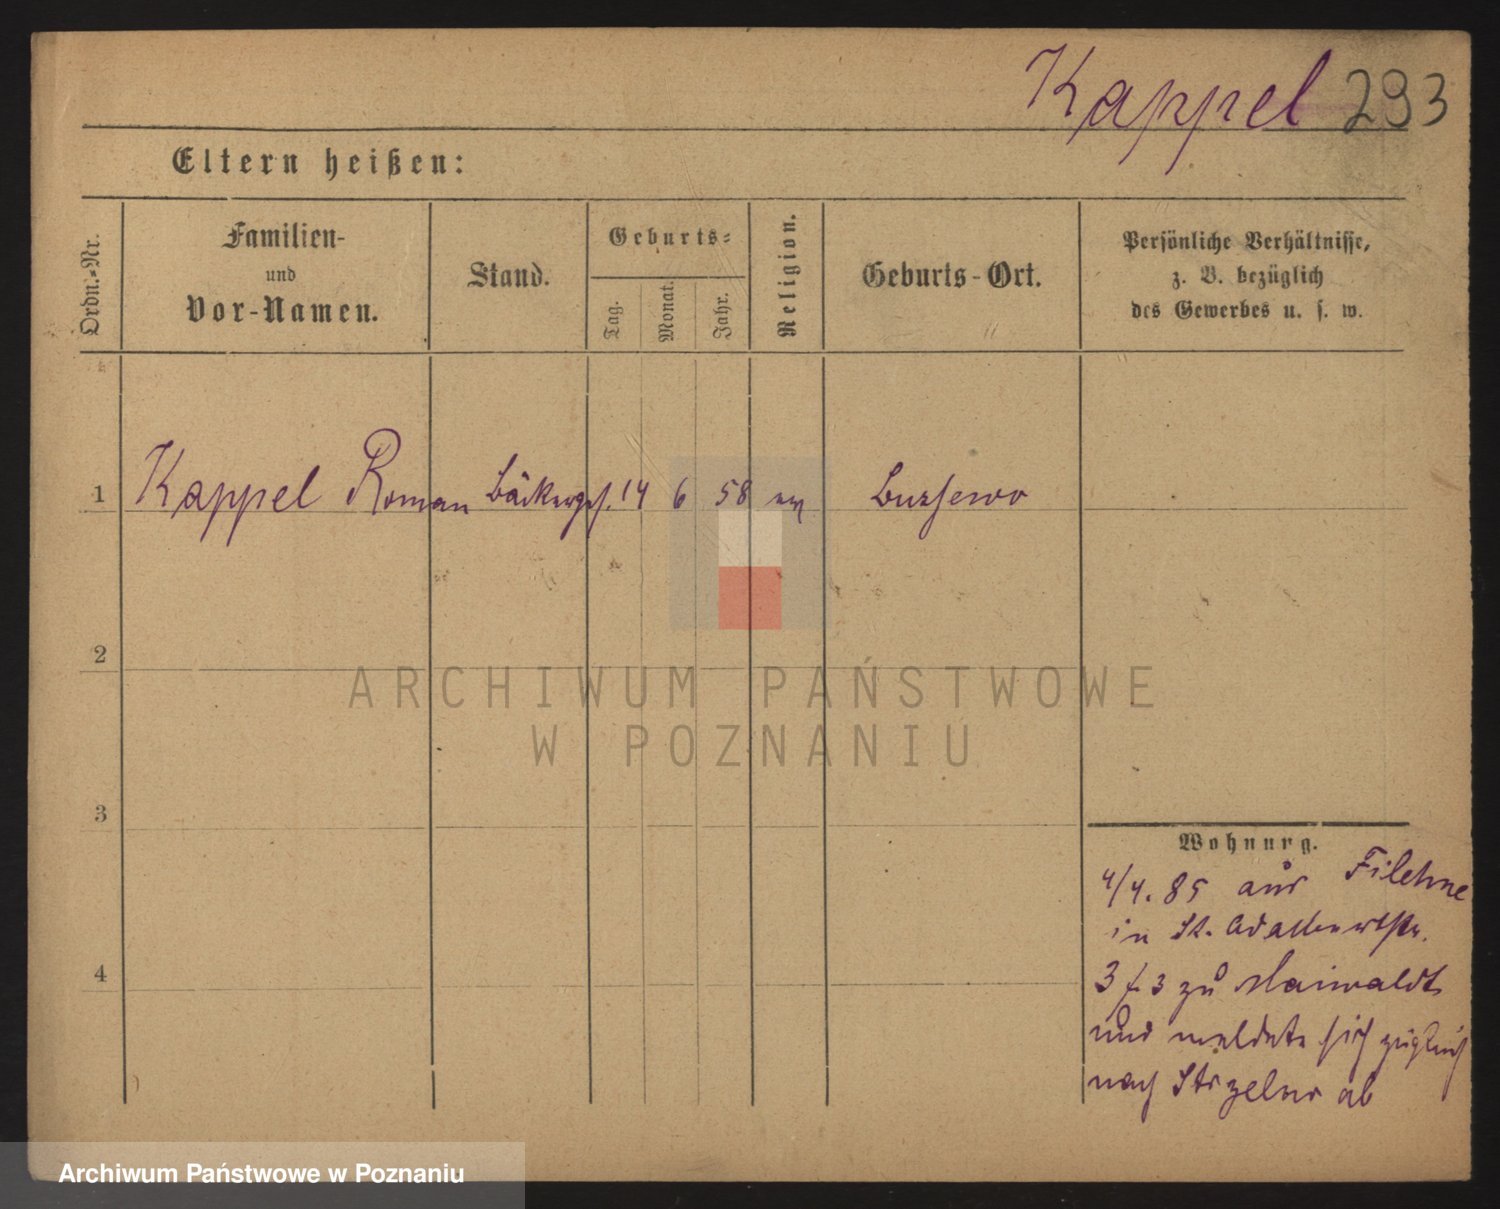 Kappel 293
Eltern heißen:
Ordn.-Nr.
Familien-
und
Vor-Namen.
Stand.
Geburts-
Tag.
Monat.
Jahr.
Religion.
Geburts-Ort.
Persönliche Verhältnisse,
z. B. bezüglich
des Gewerbes u. s. w.
1 Kappel Roman Bäckerges. 14 6 58 ev Buszewo
2
3
4
Wohnung.
4/4. 85 aus Filehne
in St. Adalbertstr.
3 f. 3 zu Maiwaldt
und meldete sich zugleich
nach ab
ARCHIWUM PAŃSTWOWE
W POZNANIU
Archiwum Państwowe w Poznaniu